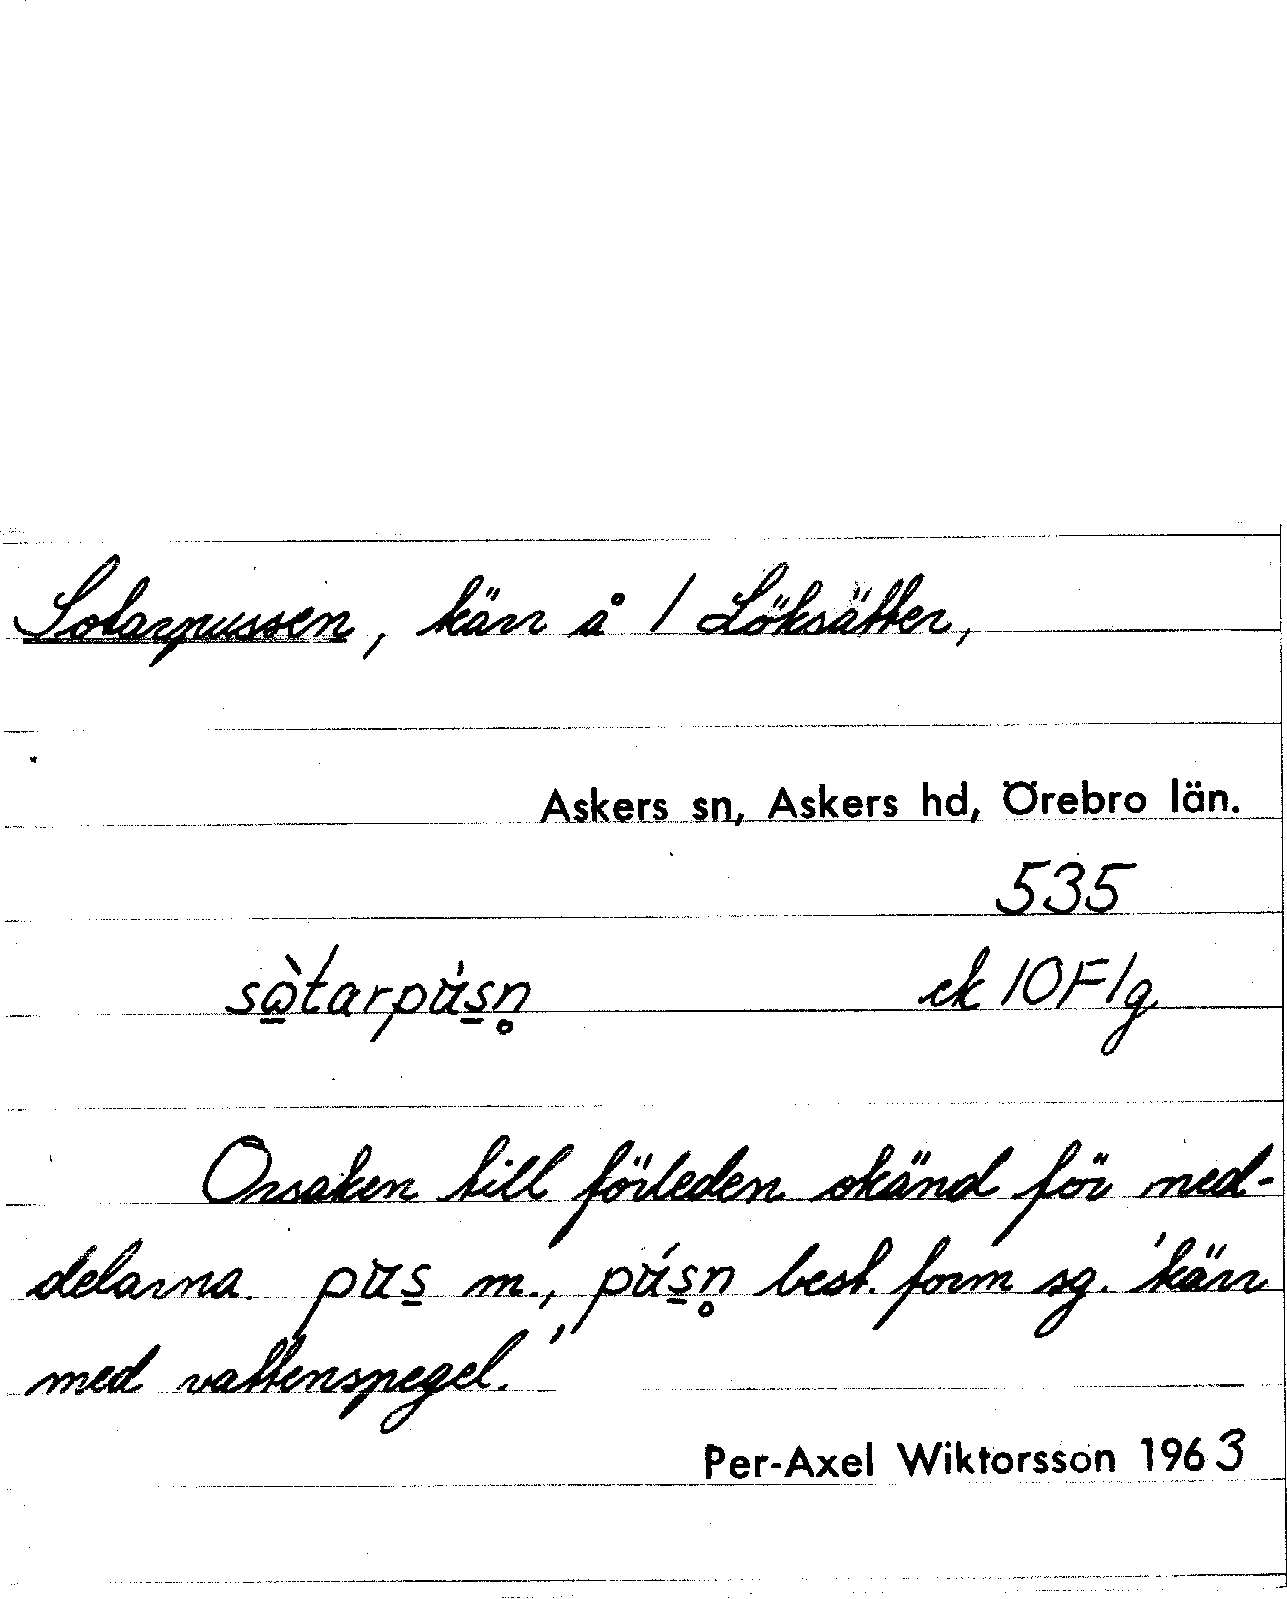 Sotarpussen, kärr å 1 Löksätter,
Askers sn, Askers hd, Örebro län.
535
sὼ̲tarpǘs̲n̥ ek 10F1g
Orsaken till förleden okänd för med-
delarna. püs̲ m., pǘs̲n̥ best. form sg. 'kärr
med vattenspegel.'
Per-Axel Wiktorsson 1963